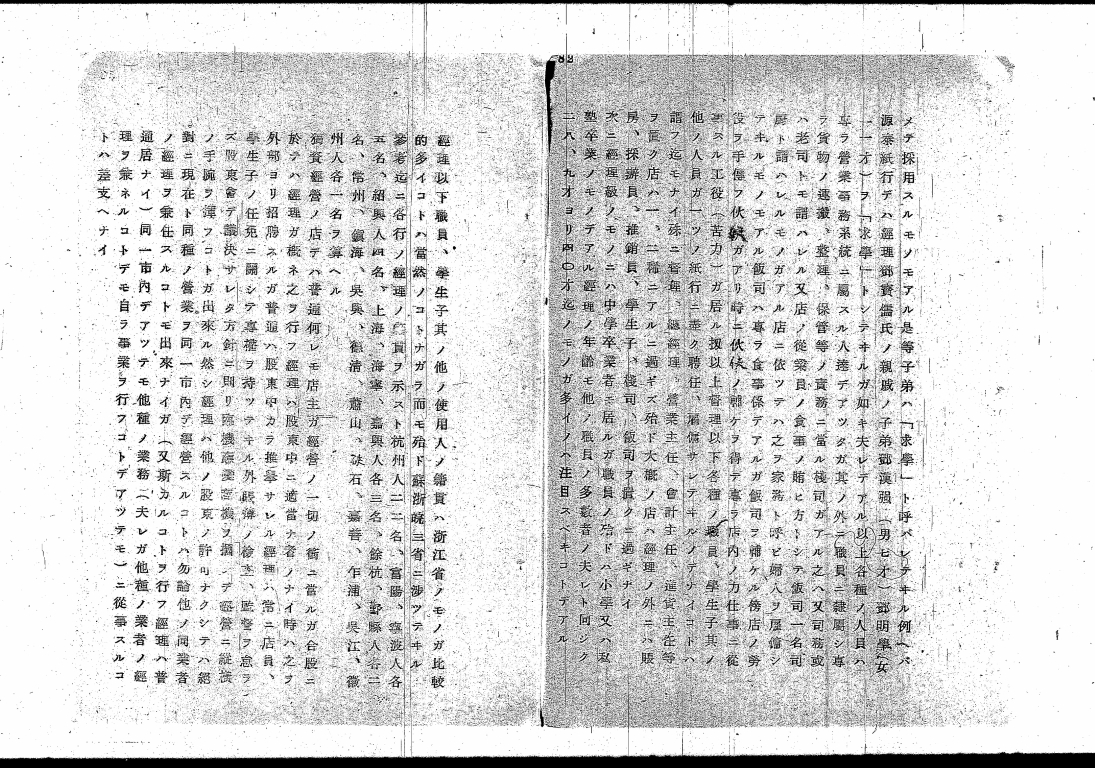 82
メテ採用スルモノモアル是等子弟ハ「求學」ト呼バレテヰル例ヘバ
源泰紙行デハ經理鄧寶儒氏ノ親戚ノ子弟鄧漢强(男七才)鄧明學(女
一一才)ヲ「求學」トシテヰルガ如キ夫レデアル以上各種ノ人員ハ
專ラ營業事務系統ニ屬スル人達デアツタガ其ノ外ニ職員ニ隷屬シ專
ラ貨物ノ運搬、整理、保管等ノ責務ニ當ル棧司ガアル之ハ又司務或
ハ老司トモ謂ハレル又店ノ從業員ノ食事ノ賄ヒ方トシテ飯司一名司
厨ト謂ハレルモノガアル店ニ依ツテハ之ヲ家務ト呼ビ婦人ヲ雇傭シ
テヰルモノモアル飯司ハ專ラ食事係デアルガ飯司ヲ補ケル傍店ノ勞
役ヲ手傳フ伙 ガアリ時ニ伙伕ノ補ケヲ得テ專ラ店内ノ力仕事ニ從
事スル工役(苦力)ガ居ル援以上管理以下各種ノ職員、學生子其ノ
他ノ人員ガ一ツノ紙行ニ盡ク聘任、雇傭サレテヰルノデナイコトハ
謂フ迄モナイ殊ニ管理、總經理、營業主任、會計主任、進貨主任等
ヲ置ク店ハ一、二稀ニアルニ過ギズ殆ド大概ノ店ハ經理ノ外ニハ賬
房、採辦員、推銷員、學生子、棧司、飯司ヲ置クニ過ギナイ
次ニ經理級ノモノニハ中學卒業者モ居ルガ職員ノ殆ドハ小學又ハ私
塾卒業ノモノデアル經理ノ年齡モ他ノ職員ノ多數者ノ夫レト同ジク
二八、九才ヨリ四〇才迄ノモノガ多イノハ注目スベキコトデアル
經理以下職員、學生子其ノ他ノ使用人ノ籍貫ハ浙江省ノモノガ比較
的多イコトハ當然ノコトナガラ而モ殆ド蘇浙皖三省ニ涉ツテヰル
參考迄ニ各行ノ經理ノ籍貫ヲ示スト杭州人二二名、富陽、寧波人各
五名、紹興人四名、上海、海寧、嘉興人各三名、餘杭、黟縣人各二
名、常州、鎭海、吳興、德清、蕭山、硤石、嘉善、乍浦、吳江、徽
州人各一名ヲ算ヘル
獨資經營ノ店デハ普通何レモ店主ガ經營ノ一切ノ衝ニ當ルガ合股ニ
於テハ經理ガ概ネ之ヲ行フ經理ハ股東中ニ適當ナ者ノナイ時ハ之ヲ
外部ヨリ招聘スルガ普通ハ股東中カラ推擧サレル經理ハ常ニ店員、
學生子ノ任免ニ關シテ專權ヲ持ツテヰル外賬簿ノ檢查、監督ヲ怠ラ
ズ股東會デ議決サレタ方針ニ則リ臨機應變商機ヲ摑ンデ經營ニ縱橫
ノ手腕ヲ彈フコトガ出來ル然シ經理ハ他ノ股東ノ許可ナクシテハ經
對ニ現在ト同種ノ營業ヲ同一市内デ經營スルコトハ勿論他ノ同業者
ノ經理ヲ兼任スルコトモ出來ナイガ(又斯カルコトヲ行フ經理ハ普
通居ナイ)同一市内デアツテモ他種ノ業務(夫レガ他種ノ業者ノ經
理ヲ兼ネルコトデモ自ラ事業ヲ行フコトデアツテモ)ニ從事スルコ
トハ差支ヘナイ